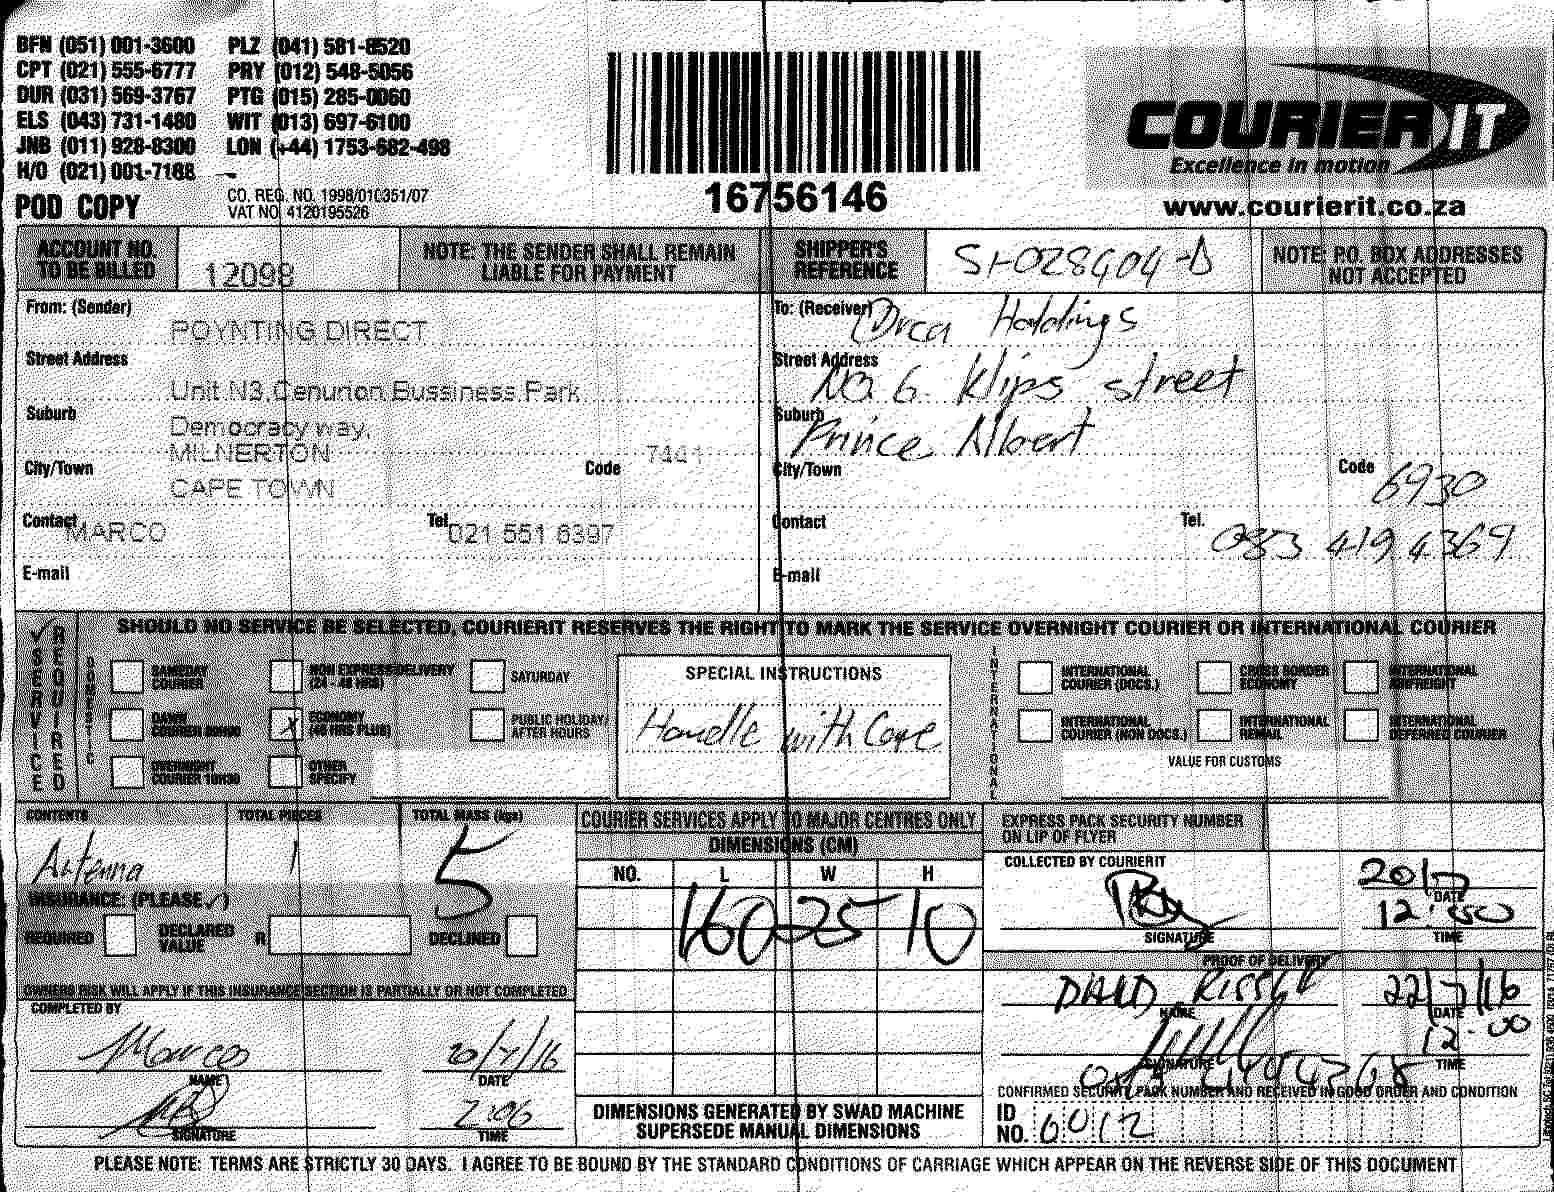 BFN (051) 001-3600 PLZ (041) 581-8520
CPT (021) 555-6777 PRY (012) 548-5056
DUR (031) 569-3767 PTG (015) 285-0060
ELS (043) 731-1480 WIT (013) 697-6100
JNB (011) 928-8300 LON (+44) 1753-682-498
H/O (021) 001-7188
POD COPY
CO. REG. NO. 1998/010351/07
VAT NO. 4120195526
16756146
COURIER IT
Excellence in motion
www.courierit.co.za
ACCOUNT NO. TO BE BILLED 12098
NOTE: THE SENDER SHALL REMAIN LIABLE FOR PAYMENT
SHIPPER'S REFERENCE SI-028404-D
NOTE: P.O. BOX ADDRESSES NOT ACCEPTED
From: (Sender) POYNTING DIRECT
Street Address
Unit N3, Cenurion Bussiness Park
Suburb Democracy way,
MILNERTON
City/Town CAPE TOWN Code 7441
Contact MARCO Tel. 021 551 6397
E-mail
To: (Receiver) Orca Holdings
Street Address No. 6 Klips street
Suburb Prince Albert
City/Town Code 6930
Contact Tel. 083 419 4369
E-mail
SERVICE REQUIRED
SHOULD NO SERVICE BE SELECTED, COURIERIT RESERVES THE RIGHT TO MARK THE SERVICE OVERNIGHT COURIER OR INTERNATIONAL COURIER
DOMESTIC
SAMEDAY COURIER
NON EXPRESS DELIVERY (24 - 48 HRS)
SATURDAY
DAWN COURIER
X ECONOMY (48 HRS PLUS)
PUBLIC HOLIDAY/ AFTER HOURS
OVERNIGHT COURIER 10H30
OTHER SPECIFY
SPECIAL INSTRUCTIONS
Handle with Care
INTERNATIONAL
INTERNATIONAL COURIER (DOCS.)
CROSS BORDER ECONOMY
INTERNATIONAL AIRFREIGHT
INTERNATIONAL COURIER (NON DOCS.)
INTERNATIONAL REMAIL
INTERNATIONAL DEFERRED COURIER
VALUE FOR CUSTOMS
CONTENTS Antenna
TOTAL PIECES 1
TOTAL MASS (kgs) 5
INSURANCE: (PLEASE ✓)
REQUIRED DECLARED VALUE R DECLINED
OWNERS RISK WILL APPLY IF THIS INSURANCE SECTION IS PARTIALLY OR NOT COMPLETED
COMPLETED BY
Marco 20/7/16
NAME DATE
2:06
SIGNATURE TIME
COURIER SERVICES APPLY TO MAJOR CENTRES ONLY
DIMENSIONS (CM)
NO. L W H
160 25 10
DIMENSIONS GENERATED BY SWAD MACHINE
SUPERSEDE MANUAL DIMENSIONS
EXPRESS PACK SECURITY NUMBER ON LIP OF FLYER
COLLECTED BY COURIERIT
20/7
DATE
12:50
SIGNATURE TIME
PROOF OF DELIVERY
22/7/16
NAME DATE
12:00
SIGNATURE TIME
CONFIRMED SECURITY PACK NUMBER AND RECEIVED IN GOOD ORDER AND CONDITION
ID NO. 6012
PLEASE NOTE: TERMS ARE STRICTLY 30 DAYS. I AGREE TO BE BOUND BY THE STANDARD CONDITIONS OF CARRIAGE WHICH APPEAR ON THE REVERSE SIDE OF THIS DOCUMENT